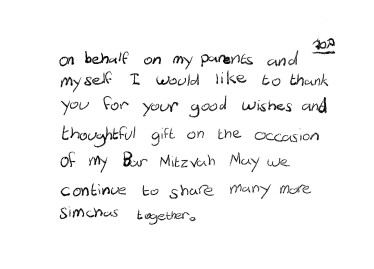 בס"ד
on behalf on my parents and
myself I would like to thank
you for your good wishes and
thoughtful gift on the occasion
of my Bar Mitzvah May we
continue to share many more
simchas together.